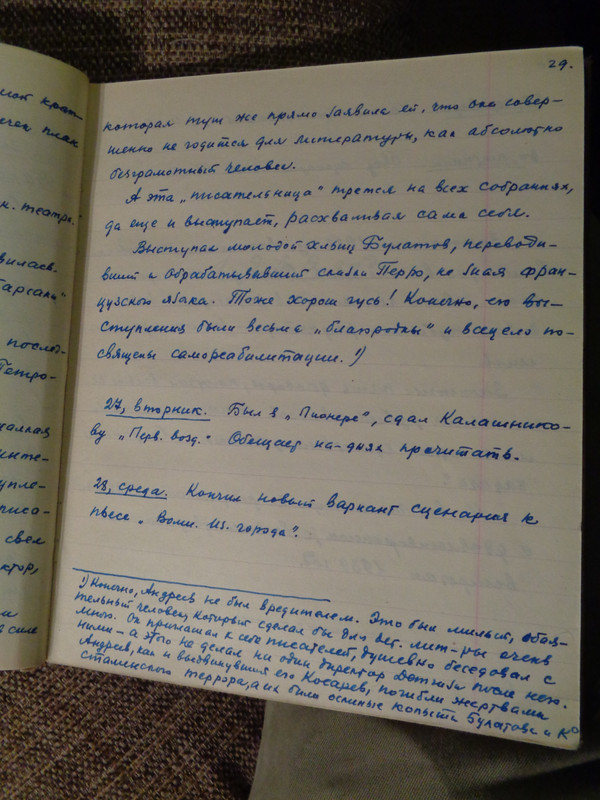 мой крат-
очен план
н. театра."
вилась.
Тарсали"
послед-
Петро-
инте-
упле-
писа-
свел
ктор,
29.
которая тут же прямо заявила ей, что она совер-
шенно не годится для литературы, как абсолютно
безграмотный человек.
А эта „писательница" трется на всех собраниях,
да еще и выступает, расхваливая сама себя.
Выступал молодой хлыщ Булатов, переводи-
вший и обрабатывавший сказки Перро, не зная фран-
цузского языка. Тоже хорош гусь! Конечно, его вы-
ступления были весьма „благородны" и всецело по-
священы самореабилитации.¹)
27, вторник. Был в „Пионере", сдал Калашнико-
ву „Перв. возд." Обещает на-днях прочитать.
28, среда. Кончил новый вариант сценария к
пьесе „Волш. Из. города".
¹) Конечно, Андреев не был вредителем. Это был милый, обоя-
тельный человек, который сделал бы для дет. лит-ры очень
много. Он приглашал к себе писателей, душевно беседовал с
ними – а этого не делал ни один директор Детгиза после него.
Андреев, как и выдвинувший его Косарев, погибли жертвами
сталинского террора, а их били ослиные копыта Булатова и Кº